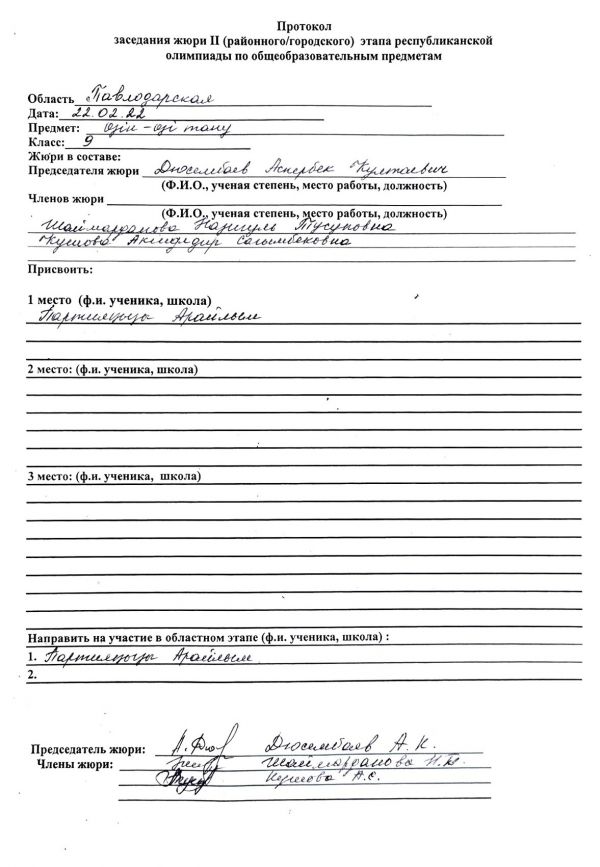 Протокол
заседания жюри II (районного/городского) этапа республиканской
олимпиады по общеобразовательным предметам
Область Павлодарская
Дата: 22.02.22
Предмет: өзін-өзі тану
Класс: 9
Жюри в составе:
Председателя жюри Дюсембаев Аспербек Култаевич
(Ф.И.О., ученая степень, место работы, должность)
Членов жюри
(Ф.И.О., ученая степень, место работы, должность)
Шаймарданова Наргуль Тусуповна
Кушова Сагымбековна
Присвоить:
1 место (ф.и. ученика, школа)
Арайлым
2 место: (ф.и. ученика, школа)
3 место: (ф.и. ученика, школа)
Направить на участие в областном этапе (ф.и. ученика, школа) :
1. Арайлым
2.
Председатель жюри: Дюсембаев А.К.
Члены жюри: Шаймарданова Н.Т.
Кушова А.С.